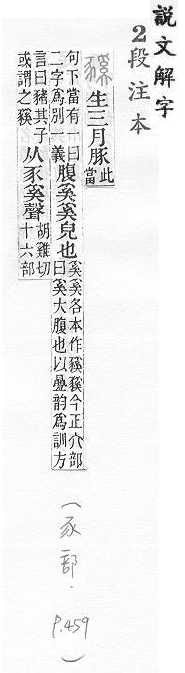 説文解字
2段注本
豯 生三月豚此當
句下當有一曰二字爲別一義腹奚奚皃也奚奚各本作豯豯今正亣部曰奚大腹也以曡韵爲訓方
言曰豬其子或謂之豯从豕奚聲胡雞切十六部
(豕部.P.459)